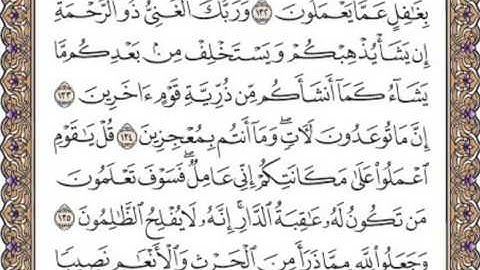 بِغَٰفِلٍ عَمَّا يَعْمَلُونَ ١٣٢ وَرَبُّكَ ٱلْغَنِيُّ ذُو ٱلرَّحْمَةِ
إِن يَشَأْ يُذْهِبْكُمْ وَيَسْتَخْلِفْ مِنۢ بَعْدِكُم مَّا
يَشَآءُ كَمَآ أَنشَأَكُم مِّن ذُرِّيَّةِ قَوْمٍ ءَاخَرِينَ ١٣٣
إِنَّ مَا تُوعَدُونَ لَءَاتٍ ۖ وَمَآ أَنتُم بِمُعْجِزِينَ ١٣٤ قُلْ يَٰقَوْمِ
ٱعْمَلُوا۟ عَلَىٰ مَكَانَتِكُمْ إِنِّي عَامِلٌ ۖ فَسَوْفَ تَعْلَمُونَ
مَن تَكُونُ لَهُۥ عَٰقِبَةُ ٱلدَّارِ ۗ إِنَّهُۥ لَا يُفْلِحُ ٱلظَّٰلِمُونَ ١٣٥
وَجَعَلُوا۟ لِلَّهِ مِمَّا ذَرَأَ مِنَ ٱلْحَرْثِ وَٱلْأَنْعَٰمِ نَصِيبًا